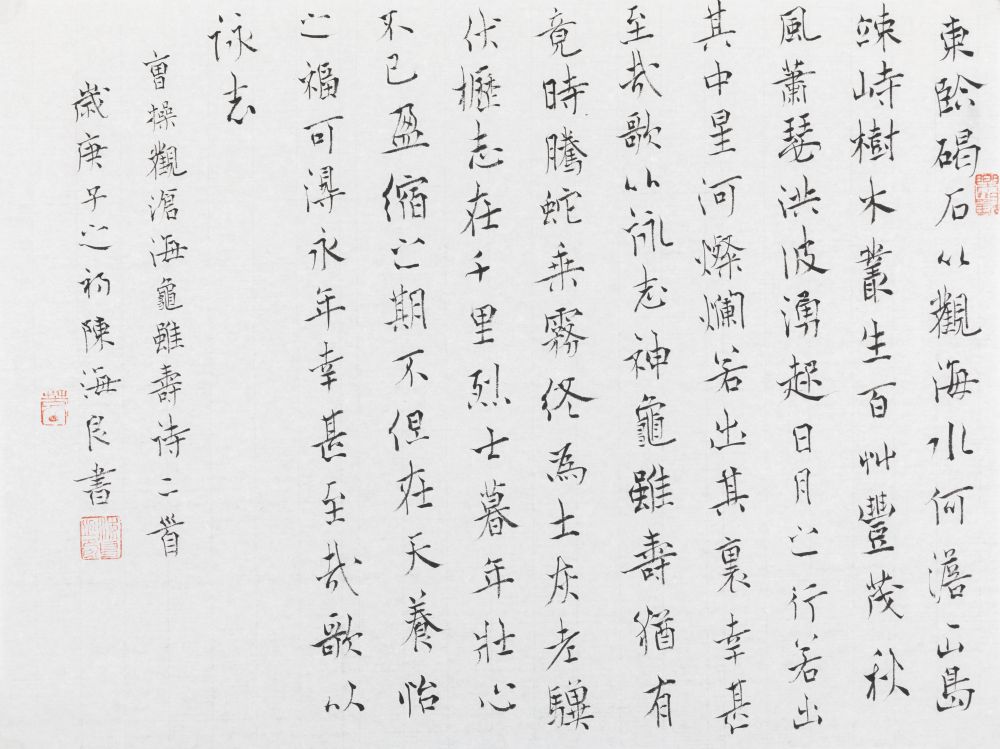 東臨碣石以觀海水何澹〻山島
竦峙樹木叢生百艸豐茂秋
風蕭瑟洪波湧起日月之行若出
其中星河燦爛若出其裏幸甚
至哉歌以詠志神龜雖壽猶有
竟時騰蛇乘霧終為土灰老驥
伏櫪志在千里烈士暮年壯心
不已盈縮之期不但在天養怡
之福可得永年幸甚至哉歌以
詠志
曹操觀滄海龜雖壽詩二首
歲庚子之初陳海良書